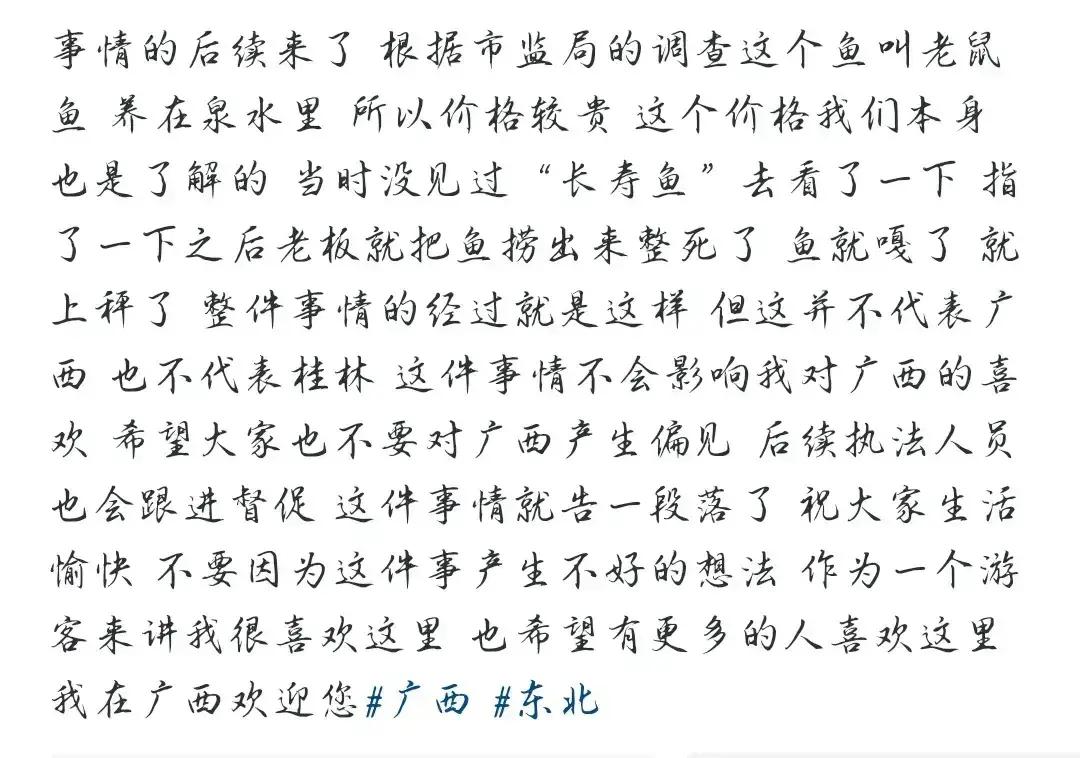 事情的后续来了 根据市监局的调查这个鱼叫老鼠
鱼 养在泉水里 所以价格较贵 这个价格我们本身
也是了解的 当时没见过“长寿鱼”去看了一下 指
了一下之后老板就把鱼捞出来整死了 鱼就嘎了 就
上秤了 整件事情的经过就是这样 但这并不代表广
西 也不代表桂林 这件事情不会影响我对广西的喜
欢 希望大家也不要对广西产生偏见 后续执法人员
也会跟进督促 这件事情就告一段落了 祝大家生活
愉快 不要因为这件事产生不好的想法 作为一个游
客来讲我很喜欢这里 也希望有更多的人喜欢这里
我在广西欢迎您#广西 #东北